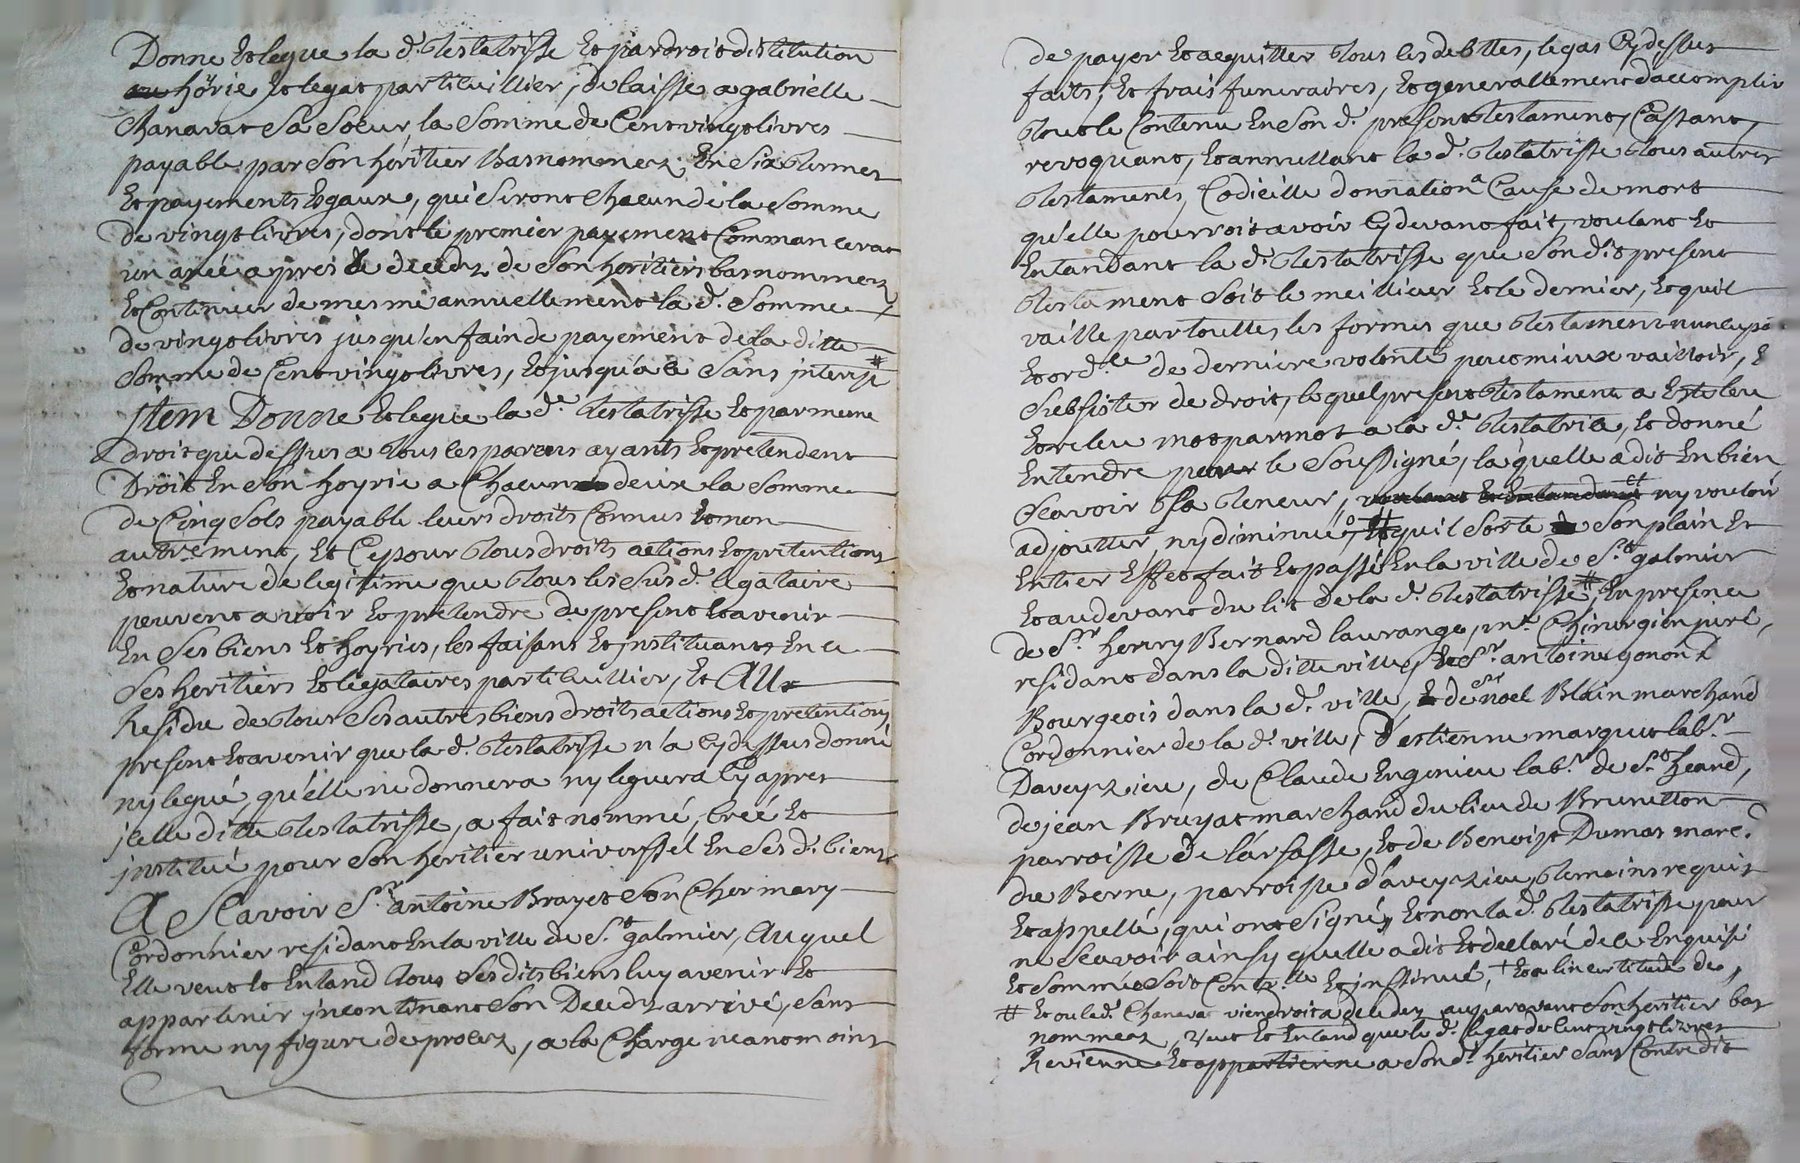 Donne Et legue la d.e testatrisse Et par droit distitution
hoïrie Et legat partiticuillier, delaisse a gabrielle
Chanavat Sa Soeur, la Somme de Cent vingt livres
payable par Son héritier bas nommez En Six termes
Et payements Egaux, qui Seront Chacun de la Somme
de vingt livres, dont le premier payement Commancerat
un aneé apres le decedz de Son heritiers bas nommez
Et Continuer de mesme annuellement la d. Somme
de vingt livres jusqu'en fain de payement de la ditte
Somme de Cent vingt livres, Et jusqu'a ce Sans interest #
Item Donne Et legue la d.e testatrisse Et par meme
droit que dessus a tous les parens ayants Et pretendent
Droit En Son hoyrie a Chacun deux la Somme
de Cinq Sols payable leurs droits Connus Et non
autrement, Et Ce pour tous droits actions Et pretentions
Et nature de legitime que tous les Sus d. legataire
peuvent avoir Et pretendre de present Et avenir
En Ses biens Et hoyries, les faisant Et jnstituant En Ce
Ses heritiers Et légataires particuillier, Et Au
Residu de tour Ses autres biens droits actions Et pretentions
present Et avenir que la d. testatrisse n'a Cy dessus donné
ny legué, qu'elle ne donnera ny leguera Cy apres
jcelle ditte testatrisse, a fait nommé, Creé Et
jnstitué pour Son heritier universsel En Ses d. biens
A Scavoir S.r antoine Brayet Son Cher mary
Cordonnier residant En la ville de S.t galmier, Auquel
Elle veut Et Entand tous Ses dits biens luy avenir Et
appartenir jncontinant Son Decedz arrivé, Sans
forme ny figure de procez, a la Charge neanomoins
de payer Et acquitter tous les debttes, legas Cy dessus
faits, Et frais funeraires, Et generallement daccomplir
tout le Contenu En Son d. present testament, Cassant,
revoquant, Et annullant la d. testatrisse tous autres
testaments, Codicille donnation a Cause de mort
qu'elle pourroit avoir Cy devant fait, voulant Et
Entandant la d. testatrisse que Son d.t present
testament Soit le meillieur Et le dernier, Et quil
vaille par touttes les formes que testament nuncupa
Et ord.re de derniere volonté peut mieux vailloir, E
Subsister de droit, lequel present testament a Esté leu
Et releu mot par mot a la d.e testatrice, Et donné
Entendre par le Soussigné, laquelle a dit En bien
Scavoir Sa teneur, ny vouloir
adjoutter, ny diminuer, Et quil Sorte Son plain Et
Entier Effet fait Et passé En la ville de S.t galmier
Et au devant du lit de la d. testatrisse #, En presence
de S.r henry Bernard laurange, m.e Chirurgien juré,
residant dans la ditte ville, Et S.r antoine gonon
Bourgeois dans la d. ville, de noel Blain marchand
Cordonnier de la d. ville, d'estienne marquet lab.r
Daveyzieu, de Claude Engenieu lab.r de S.t heand,
de jean Bruyat marchand du lieu de Brunetton
parroisse de larsasse, Et de Benoist Dumas marc.d
du Berne, parroisse d'aveyzieu, temoins requis
Et appellé, qui ont Signéz Et non la d. testatrisse pour
ne Scavoir ainsy quelle a dit Et declaré de ce Enquise
Et Sommée Soit Contr.le Et jnssinué, † Et a lincertitude de,
# Et ou la d. Chanavat viendroit a deceder auparavant Son heritier bas
nommez, veut Et Entand que le d. legat de Cent vingt livres
Revienne Et appartienne a Son d. heritier Sans Contredit